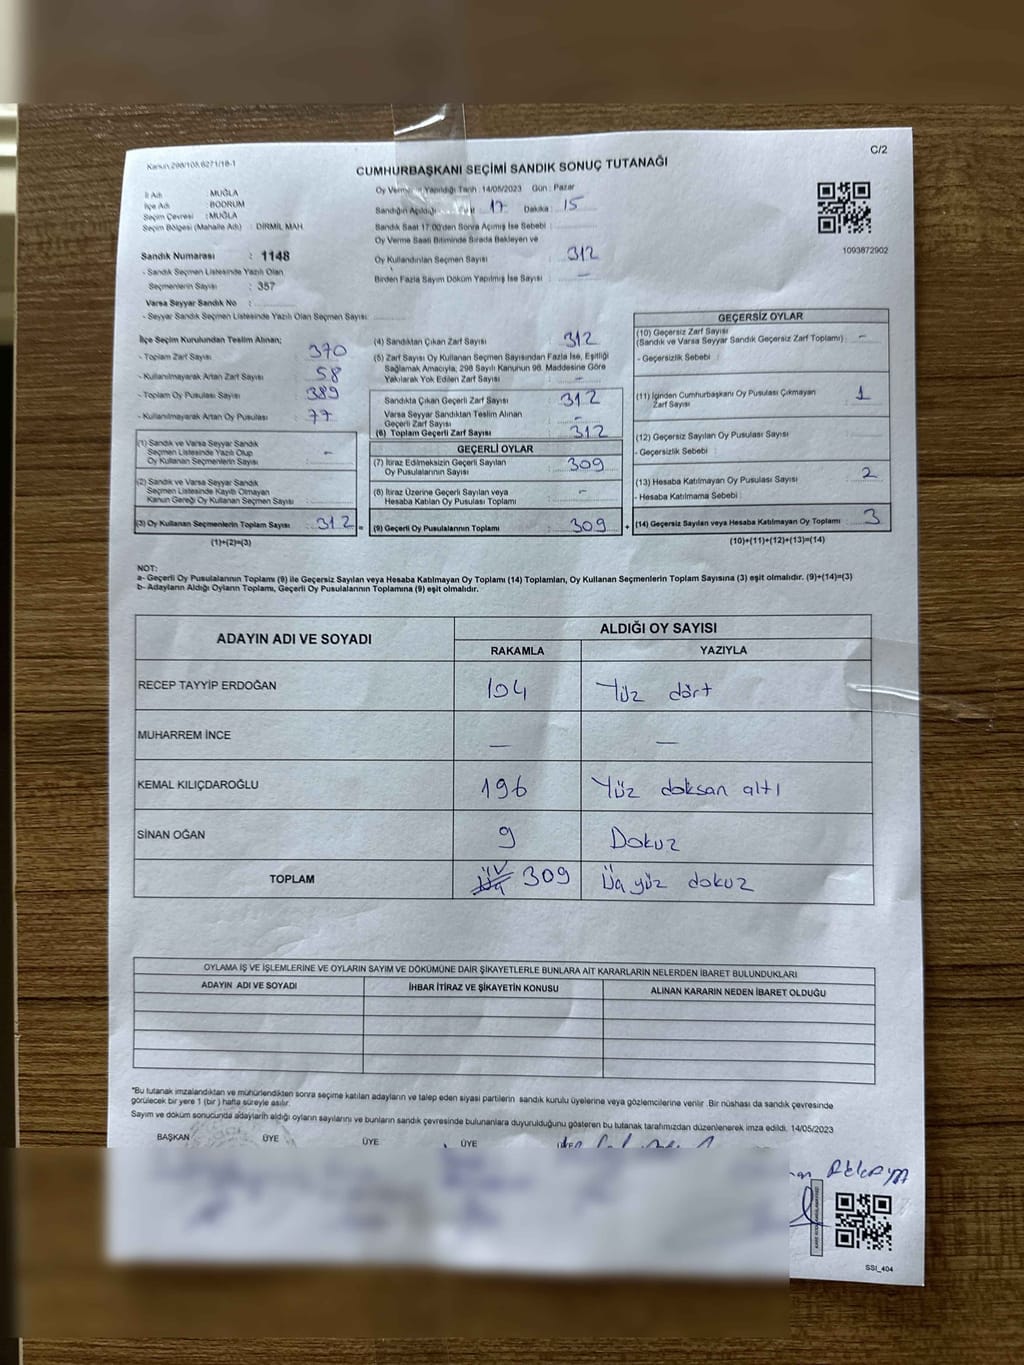 Kanun 298/105,6271/18-1
C/2
CUMHURBAŞKANI SEÇİMİ SANDIK SONUÇ TUTANAĞI
İl Adı : MUĞLA
İlçe Adı : BODRUM
Seçim Çevresi : MUĞLA
Seçim Bölgesi (Mahalle Adı) : DİRMİL MAH.
Oy Verme Yapıldığı Tarih : 14/05/2023 Gün : Pazar
Sandığın Açıldığı 17 Dakika : 15
Sandık Saat 17:00'den Sonra Açılmış İse Sebebi :
Oy Verme Saati Bitiminde Sırada Bekleyen ve
Oy Kullandırılan Seçmen Sayısı : 312
Birden Fazla Sayım Döküm Yapılmış İse Sayısı : —
1093872902
Sandık Numarası : 1148
- Sandık Seçmen Listesinde Yazılı Olan
Seçmenlerin Sayısı : 357
Varsa Seyyar Sandık No :
- Seyyar Sandık Seçmen Listesinde Yazılı Olan Seçmen Sayısı:
İlçe Seçim Kurulundan Teslim Alınan;
- Toplam Zarf Sayısı : 370
- Kullanılmayarak Artan Zarf Sayısı : 58
- Toplam Oy Pusulası Sayısı : 389
- Kullanılmayarak Artan Oy Pusulası : 77
(1) Sandık ve Varsa Seyyar Sandık
Seçmen Listesinde Yazılı Olup
Oy Kullanan Seçmenlerin Sayısı : -
(2) Sandık ve Varsa Seyyar Sandık
Seçmen Listesinde Kayıtlı Olmayan
Kanun Gereği Oy Kullanan Seçmen Sayısı :
(3) Oy Kullanan Seçmenlerin Toplam Sayısı : 312 =
(1)+(2)=(3)
(4) Sandıktan Çıkan Zarf Sayısı : 312
(5) Zarf Sayısı Oy Kullanan Seçmen Sayısından Fazla İse, Eşitliği
Sağlamak Amacıyla, 298 Sayılı Kanunun 98. Maddesine Göre
Yakılarak Yok Edilen Zarf Sayısı : —
Sandıkta Çıkan Geçerli Zarf Sayısı : 312
Varsa Seyyar Sandıktan Teslim Alınan
Geçerli Zarf Sayısı : —
(6) Toplam Geçerli Zarf Sayısı : 312
GEÇERLİ OYLAR
(7) İtiraz Edilmeksizin Geçerli Sayılan
Oy Pusulalarının Sayısı : 309
(8) İtiraz Üzerine Geçerli Sayılan veya
Hesaba Katılan Oy Pusulası Toplamı : -
(9) Geçerli Oy Pusulalarının Toplamı : 309 +
GEÇERSİZ OYLAR
(10) Geçersiz Zarf Sayısı
(Sandık ve Varsa Seyyar Sandık Geçersiz Zarf Toplamı) : -
- Geçersizlik Sebebi :
(11) İçinden Cumhurbaşkanı Oy Pusulası Çıkmayan
Zarf Sayısı : 1
(12) Geçersiz Sayılan Oy Pusulası Sayısı :
- Geçersizlik Sebebi :
(13) Hesaba Katılmayan Oy Pusulası Sayısı : 2
- Hesaba Katılmama Sebebi :
(14) Geçersiz Sayılan veya Hesaba Katılmayan Oy Toplamı : 3
(10)+(11)+(12)+(13)=(14)
NOT:
a- Geçerli Oy Pusulalarının Toplamı (9) ile Geçersiz Sayılan veya Hesaba Katılmayan Oy Toplamı (14) Toplamları, Oy Kullanan Seçmenlerin Toplam Sayısına (3) eşit olmalıdır. (9)+(14)=(3)
b- Adayların Aldığı Oyların Toplamı, Geçerli Oy Pusulalarının Toplamına (9) eşit olmalıdır.
ADAYIN ADI VE SOYADI
ALDIĞI OY SAYISI
RAKAMLA YAZIYLA
RECEP TAYYİP ERDOĞAN 104 Yüz dört
MUHARREM İNCE — —
KEMAL KILIÇDAROĞLU 196 Yüz doksan altı
SİNAN OĞAN 9 Dokuz
TOPLAM 309 Üç yüz dokuz
OYLAMA İŞ VE İŞLEMLERİNE VE OYLARIN SAYIM VE DÖKÜMÜNE DAİR ŞİKAYETLERLE BUNLARA AİT KARARLARIN NELERDEN İBARET BULUNDUKLARI
ADAYIN ADI VE SOYADI İHBAR İTİRAZ VE ŞİKAYETİN KONUSU ALINAN KARARIN NEDEN İBARET OLDUĞU
*Bu tutanak imzalandıktan ve mühürlendikten sonra seçime katılan adayların ve talep eden siyasi partilerin sandık kurulu üyelerine veya gözlemcilerine verilir .Bir nüshası da sandık çevresinde
görülecek bir yere 1 (bir ) hafta süreyle asılır.
Sayım ve döküm sonucunda adayların aldığı oyların sayılarını ve bunların sandık çevresinde bulunanlara duyurulduğunu gösteren bu tutanak tarafımızdan düzenlenerek imza edildi. 14/05/2023
BAŞKAN ÜYE ÜYE ÜYE
SSI_404